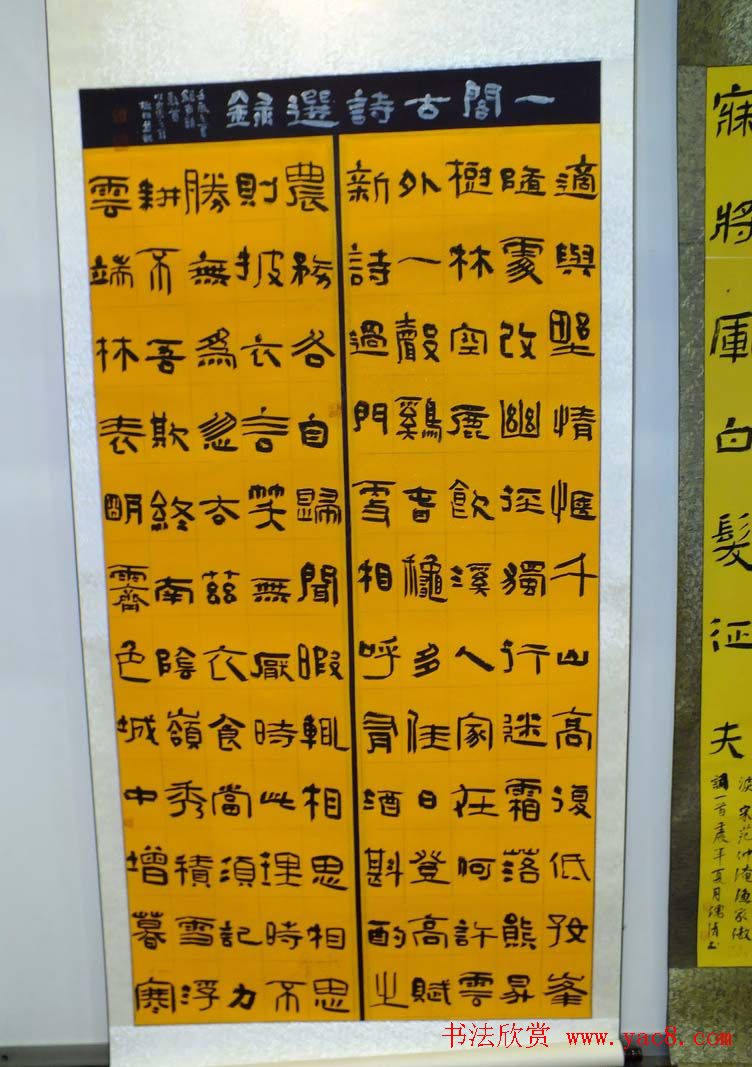 一閣古詩選錄
適與野情愜千山高復低好峯
隨處改幽徑獨行迷霜落熊昇
樹林空鹿飲溪人家在何許雲
外一聲鷄春穐多佳日登高賦
新詩過門更相呼有酒斟酌之
農務各自歸聞暇輒相思相思
則披衣言笑無厭時此理時不
勝無為忽去茲衣食當須記力
耕不吾欺終南陰嶺秀積雪浮
雲端林表明霽色城中增暮寒
寐將軍白髮征夫
淚 宋范仲淹漁家傲
調一首
书法欣赏 www.yac8.com